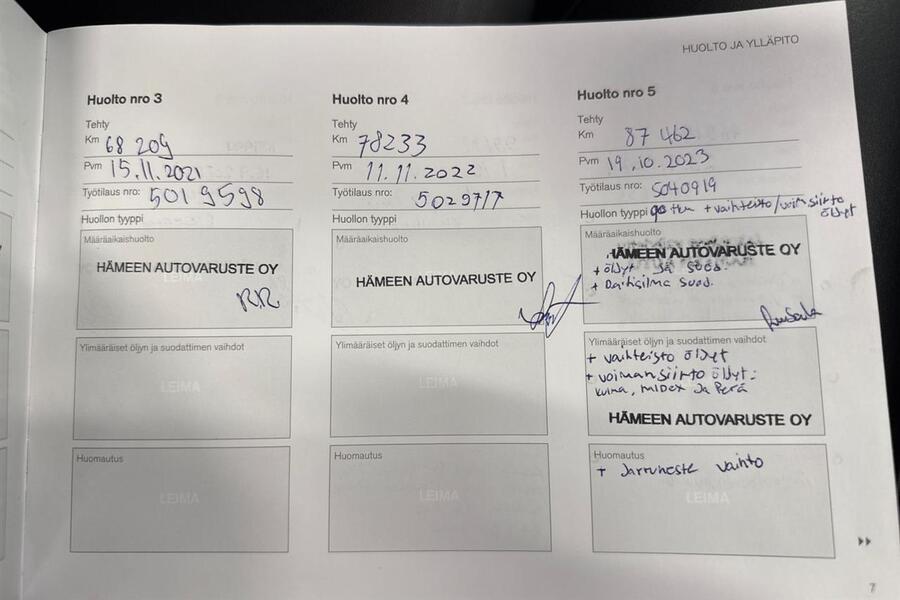 HUOLTO JA YLLÄPITO
Huolto nro 3
Tehty
Km 68 209
Pvm 15.11.2021
Työtilaus nro: 5019598
Huollon tyyppi
Määräaikaishuolto
HÄMEEN AUTOVARUSTE OY
LEIMA
RR
Ylimääräiset öljyn ja suodattimen vaihdot
LEIMA
Huomautus
LEIMA
Huolto nro 4
Tehty
Km 78233
Pvm 11.11.2022
Työtilaus nro: 5029717
Huollon tyyppi
Määräaikaishuolto
HÄMEEN AUTOVARUSTE OY
Ylimääräiset öljyn ja suodattimen vaihdot
LEIMA
Huomautus
LEIMA
Huolto nro 5
Tehty
Km 87 462
Pvm 19.10.2023
Työtilaus nro: 5040919
Huollon tyyppi 90 tkm + vaihteisto/voimansiirto
öljyt
Määräaikaishuolto
HÄMEEN AUTOVARUSTE OY
+ öljyt ja suod.
+ Raitisilma suod.
Ylimääräiset öljyn ja suodattimen vaihdot
+ vaihteisto öljyt
+ voimansiirto öljyt:
kulma, mIDex ja Perä
HÄMEEN AUTOVARUSTE OY
Huomautus
+ Jarruneste vaihto
LEIMA
7